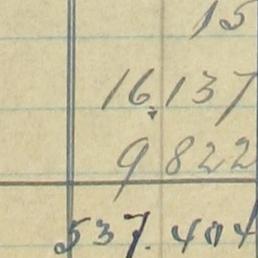 15
16.137
9822
537.484